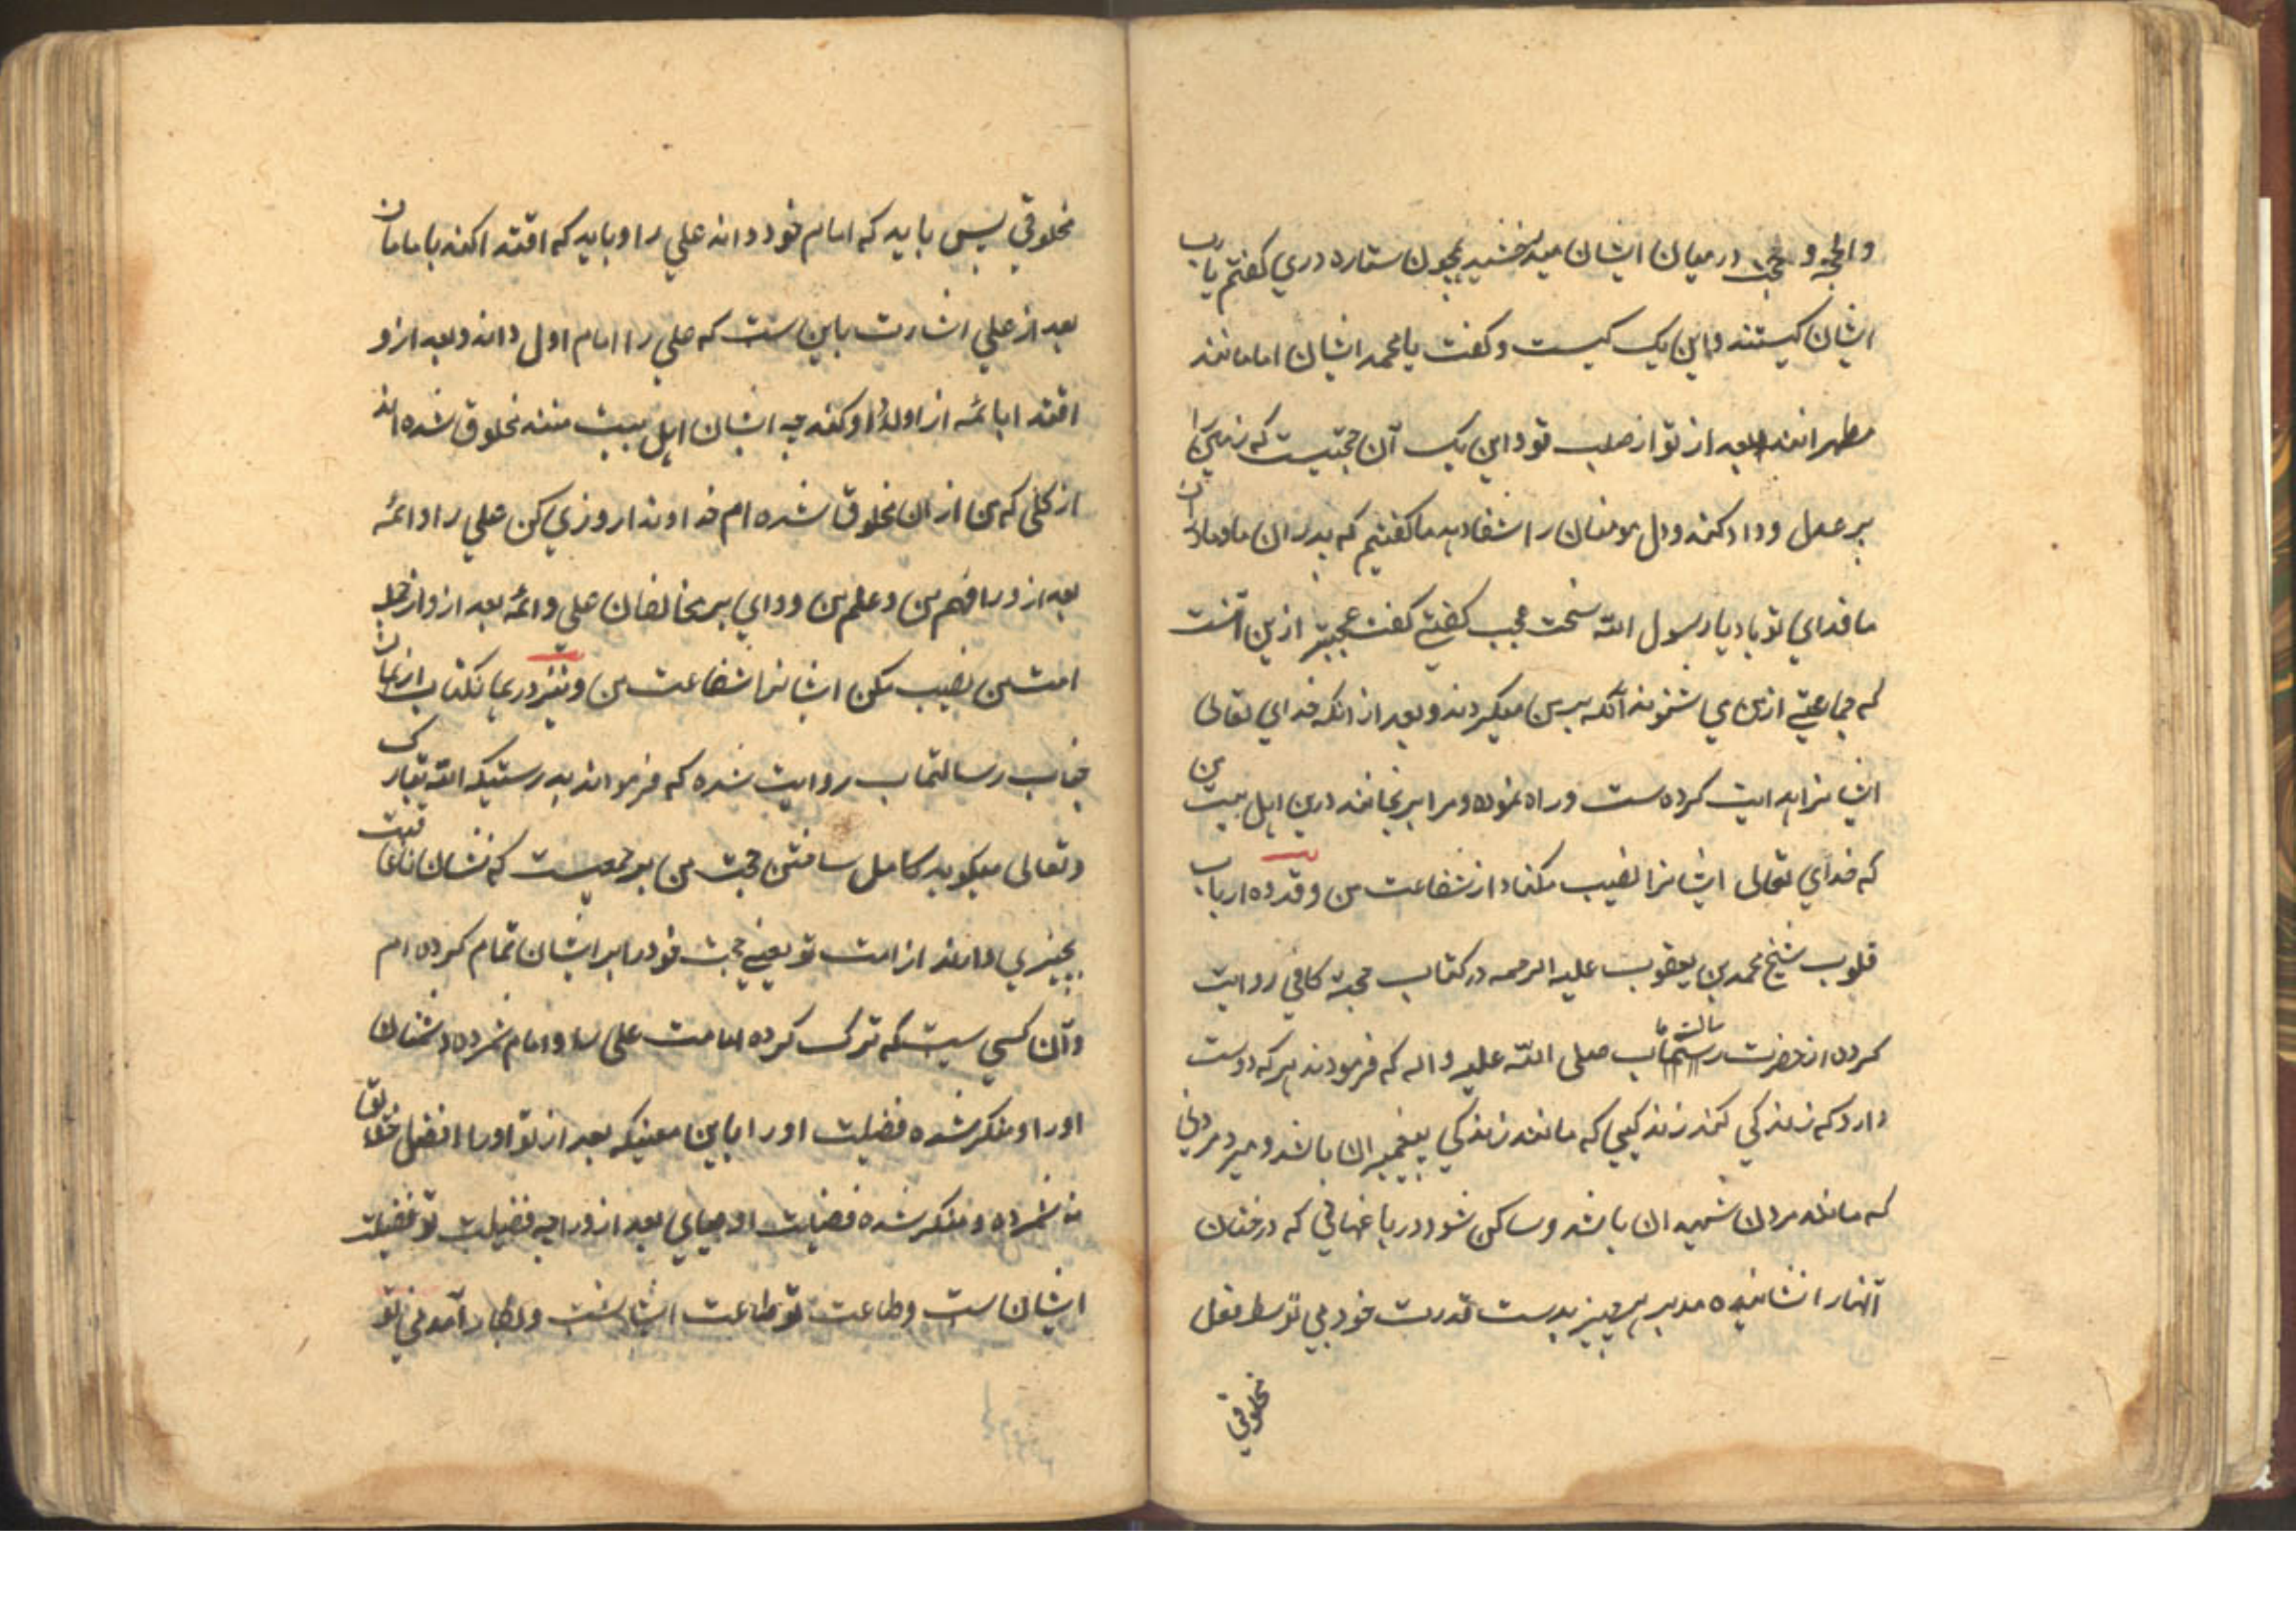 والحجه و حجت درمیان ایشان میدرخشید همچون ستاره دری کفتم یا رب
ایشان کیستند واین یک کیست و کفت یا محمد ایشان امامانند
مطهرانند بعد از تو از صلب تو واین یک آن حجتیست که زمین را
بر عدل و داد کند ودل مومنان را شفا دهد ما کفتیم که پدران ما ومادران
ما فدای تو باد یا رسول الله سخت عجب کفتی کفت عجبتر ازین آنست
که جماعتی ازمن می شنوند آنکه بر من میکردند و بعد از انکه خدای تعالی
ایشانرا هدایت کرده ست و راه نموده و مرا برنجانند درین اهل بیت من
که خدای تعالی ایشانرا نصیب مکناد از شفاعت من وقدده ارباب
قلوب شیخ محمد بن یعقوب علیه الرحمه در کتاب حجة کافی روایت
کرده از حضرت رسالتماب صلی الله علیه و اله که فرمودند هر که دوست
دارد که زندکی کند زندکیی که مانند زندکی پیغمبران باشد و میرد مردنی
که مانند مردن شهیدان باشد و ساکن شود در باغهائی که درختان
آنهارا نشانیده مدبر هر چیز بدست قدرت خود بی توسط فعل
مخلوقی
مخلوقی پس باید که امام خود داند علی را و باید که اقتدا کند بامامان
بعد از علی اشارت باین ست که علی را امام اول داند و بعد ازو
اقتدا بائمه از اولاد او کند چه ایشان اهل بیت منند مخلوق شده اند
از کلی که من از ان مخلوق شده ام خداوندا روزی کن علی را وائمه
بعد ازورا فهم من وعلم من و وای بر مخالفان علی وائمه بعد ازو از جمله
امت من نصیب مکن ایشانرا شفاعت من ونیز در همان کتاب از همان
جناب رسالتماب روایت شده که فرمواند بدرستیکه الله تبارک
وتعالی میکوید کامل ساختن حجت من بر جمعیست که نشان
بچیزی دارند از امت تو یعنی حجت خود را بر ایشان تمام کرده ام
وآن کسی ست که ترک کرده امامت علی را و امام شمرده دشمنان
اورا و منکر شده فضیلت اورا باین معنیکه بعد از تو اورا افضل خلایق
نشمرده و منکر شده فضیلت اوصیای بعد ازورا چه فضیلت تو فضیلت
ایشان است وطاعت تو طاعت ایشانست